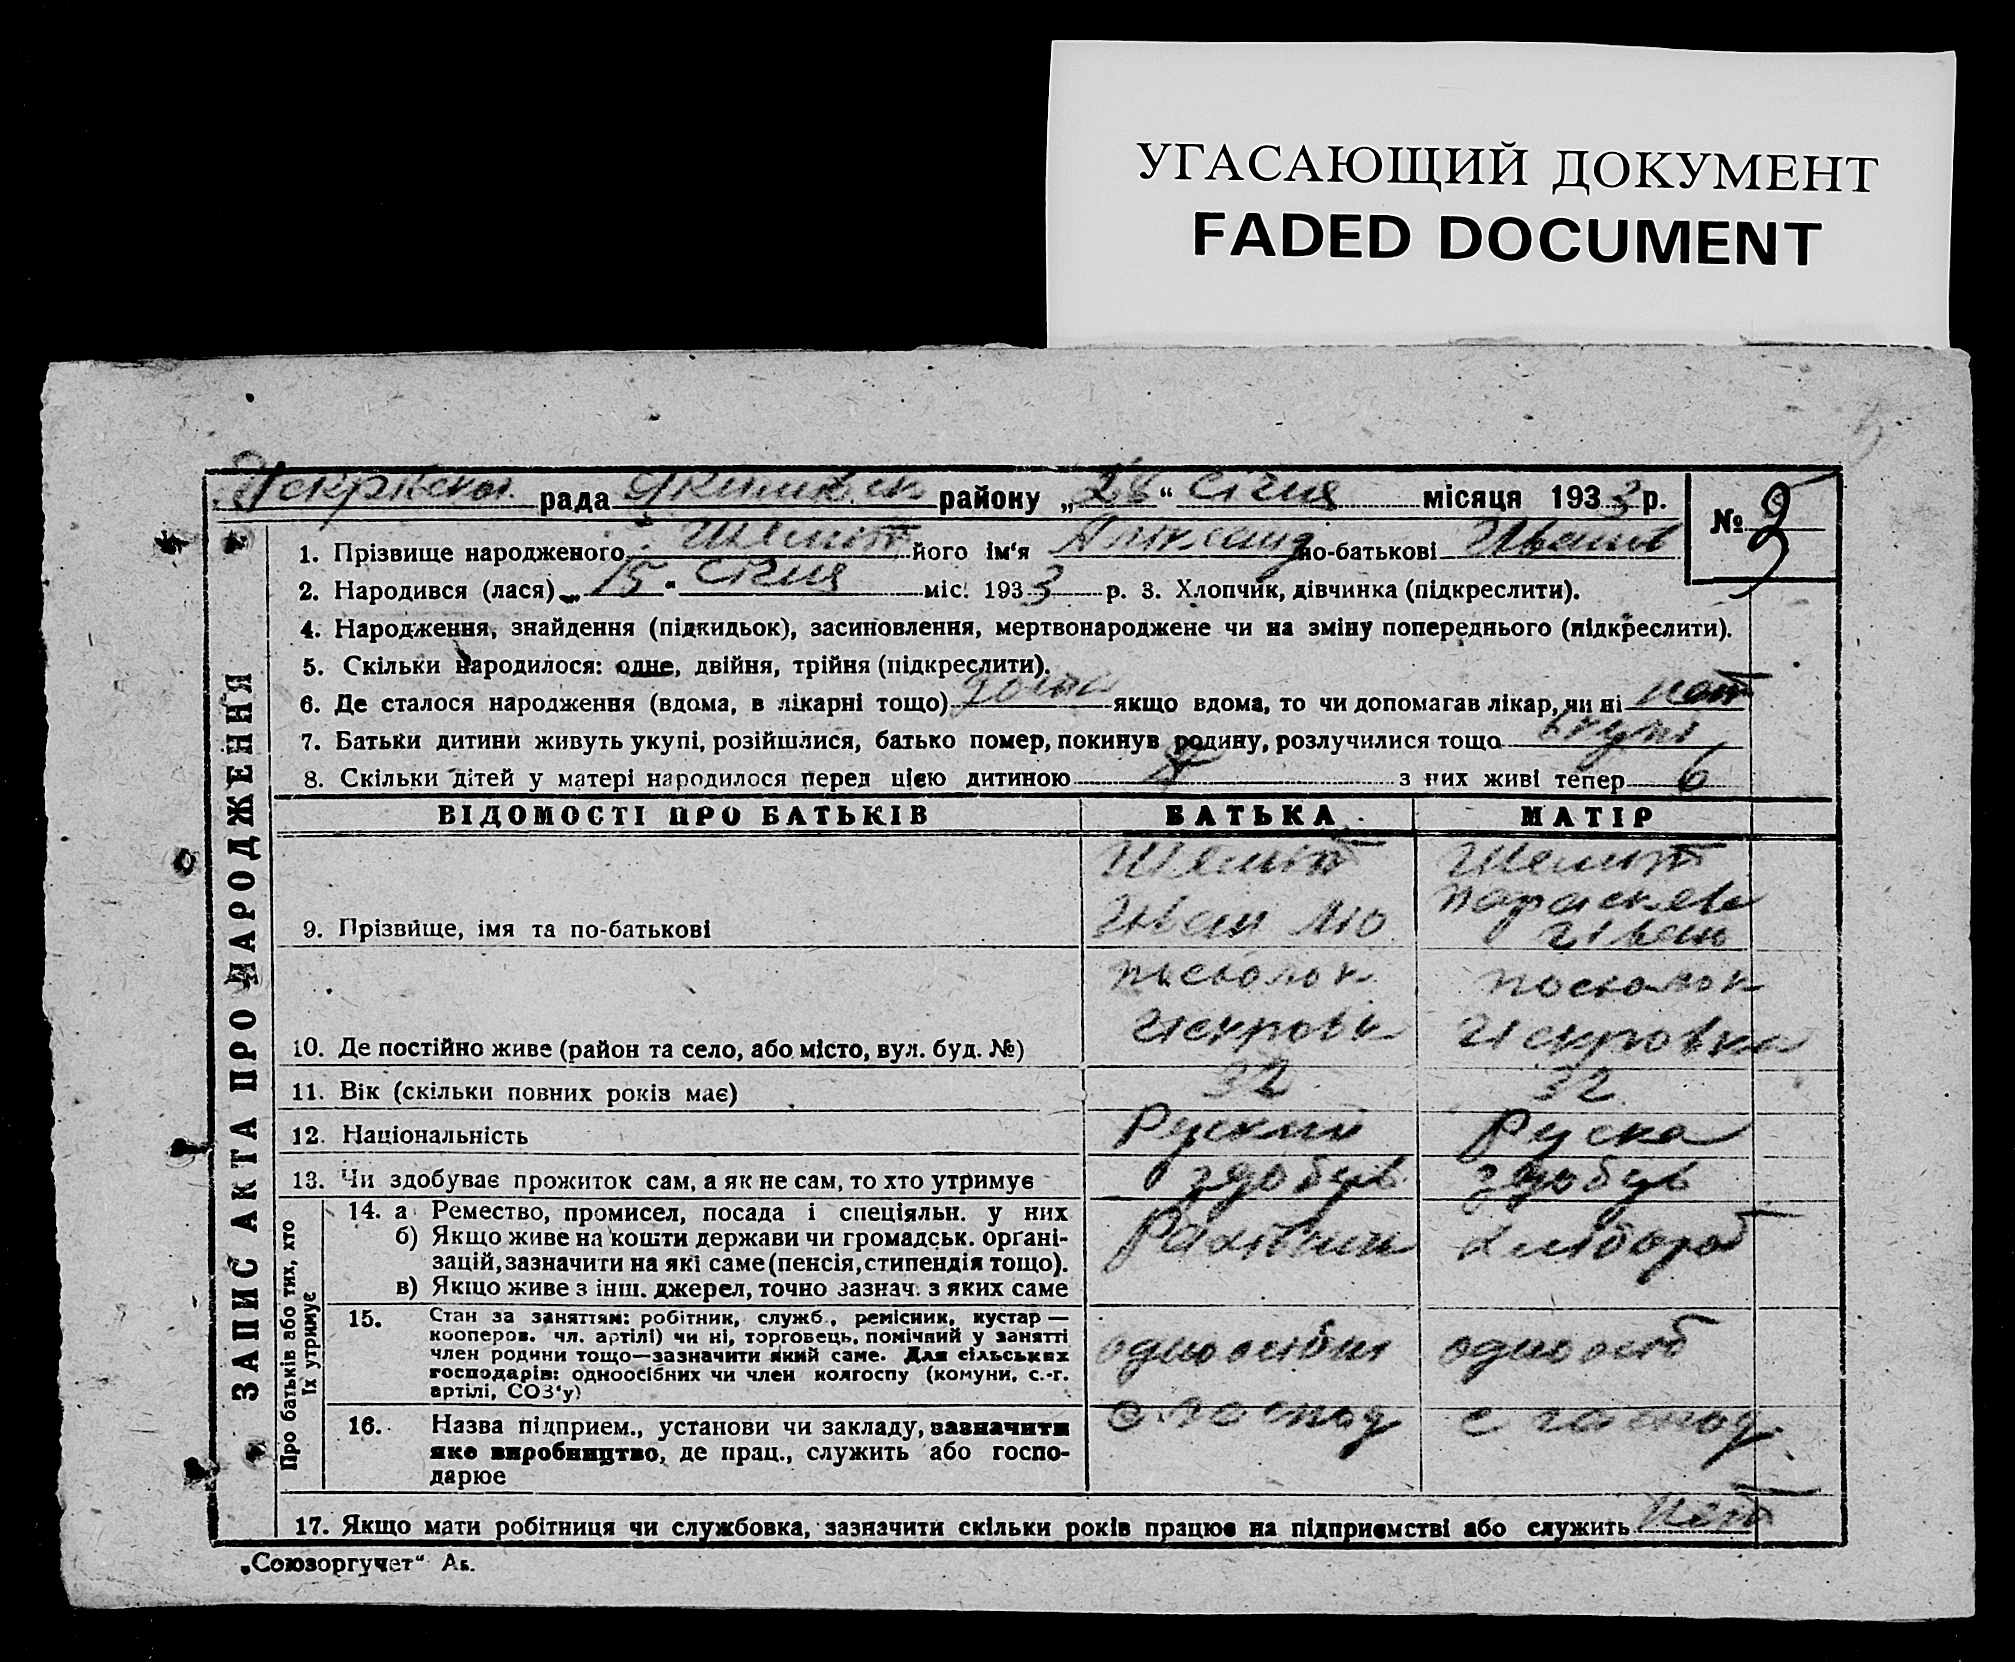 УГАСАЮЩИЙ ДОКУМЕНТ
FADED DOCUMENT
рада района „28“ січня місяця 1933 р.
№ 9
1. Прізвище народженого його ім‘я по-батькові Иванів
2. Народився (лася) „15“ січня міс. 1933 р. 3. Хлопчик, дівчинка (підкреслити).
4. Народження, знайдення (підкидьок), засиновлення, мертвонароджене чи на зміну попереднього (підкреслити).
5. Скільки народилося: одне, двійня, трійня (підкреслити).
6. Де сталося народження (вдома, в лікарні тощо) дома якщо вдома, то чи допомагав лікар, чи ні нет
7. Батьки дитини живуть укупі, розійшлися, батько помер, покинув родину, розлучилися тощо вкупі
8. Скільки дітей у матері народилося перед цією дитиною 8 з них живі тепер 6
ЗАПИС АКТА ПРО НАРОДЖЕННЯ
ВІДОМОСТІ ПРО БАТЬКІВ БАТЬКА МАТІР
9. Прізвище, імя та по-батькові
Иван
10. Де постійно живе (район та село, або місто, вул. буд. №)
посьолок посьолок
Искровк Искровка
11. Вік (скільки повних років має) 32 32
12. Національність Руский Руска
13. Чи здобуває прожиток сам, а як не сам, то хто утримує здобув здобув
Про батьків або тих, хто
їх утримує
14. а Ремество, промисел, посада і спеціяльн. у них
б) Якщо живе на кошти держави чи громадськ. орґані-
зацій, зазначити на які саме (пенсія, стипендія тощо).
в) Якщо живе з інш. джерел, точно зазнач. з яких саме
хлібороб
15. Стан за заняттям: робітник, служб., ремісник, кустар —
кооперов. чл. артілі) чи ні, торговець, помічний у занятті
член родини тощо—зазначити який саме. Для сільських
господарів: одноосібних чи член колгоспу (комуни, с.-г.
артілі, СОЗ‘у)
одноосібни одноосіб
16. Назва підприєм., установи чи закладу, зазначити
яке виробництво, де прац., служить або госпо-
дарює
с господ с господ.
17. Якщо мати робітниця чи службовка, зазначити скільки років працює на підприємстві або служить Нет
„Союзоргучет“ Ак.